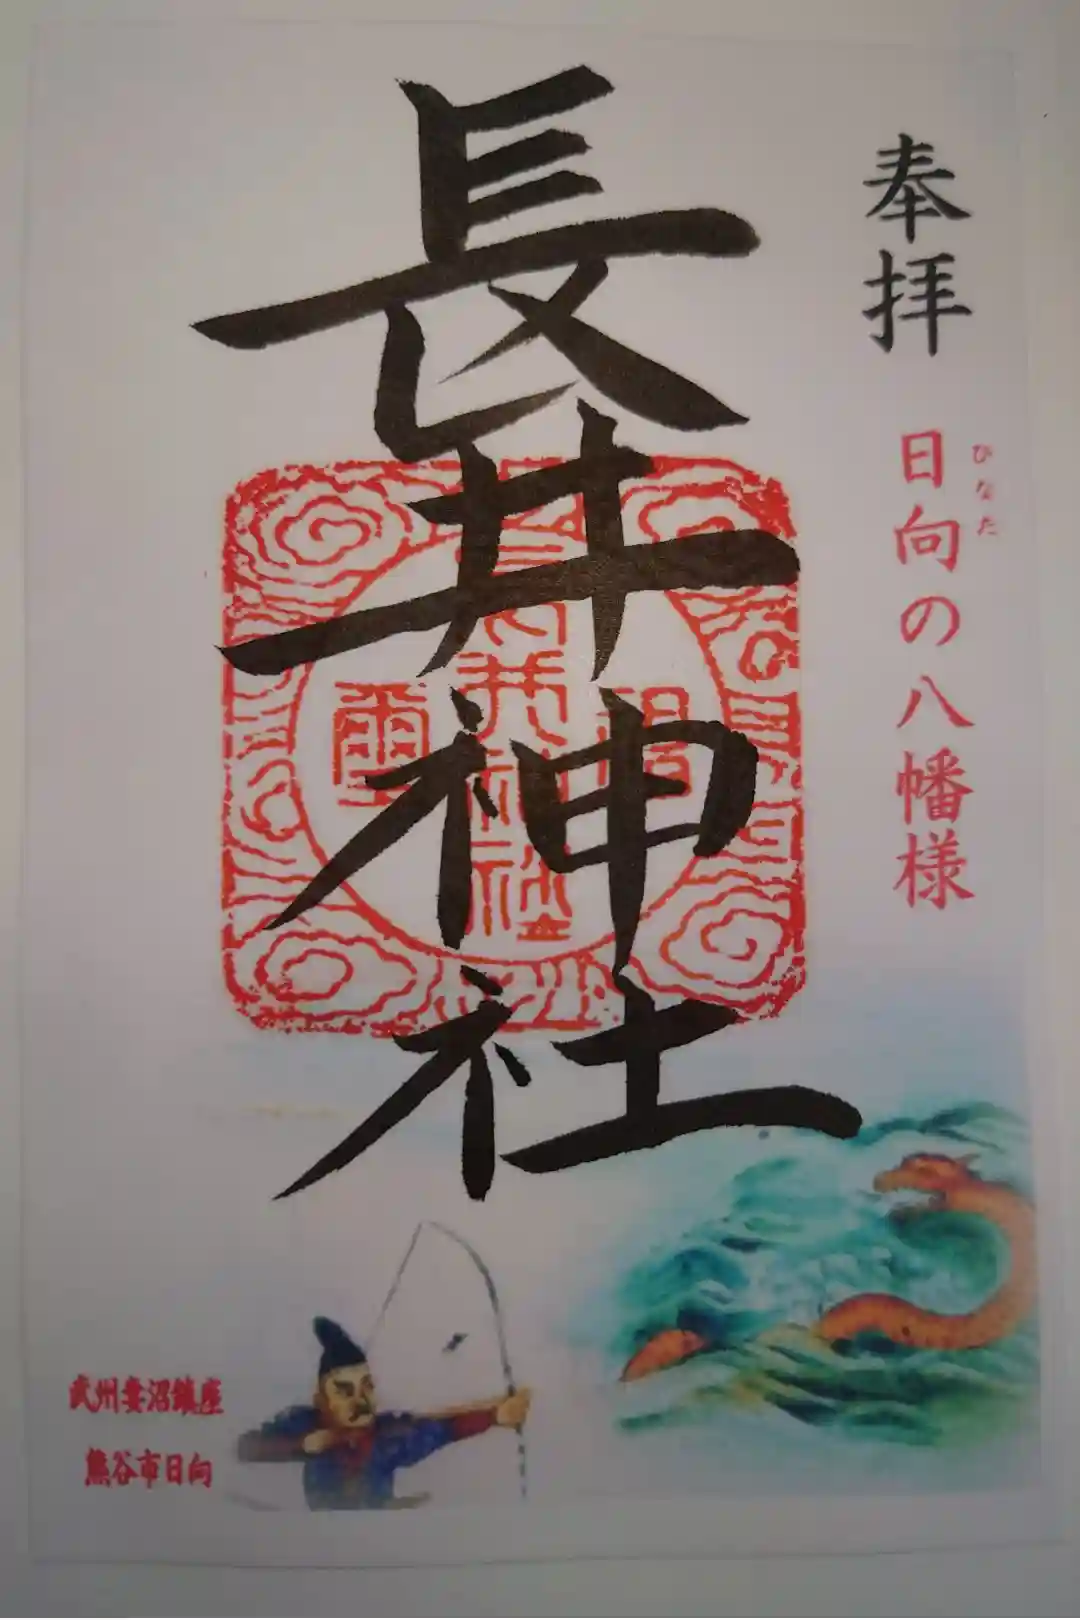 奉拝
ひなた
日向の八幡様
長井神社
武州妻沼鎮座
熊谷市日向